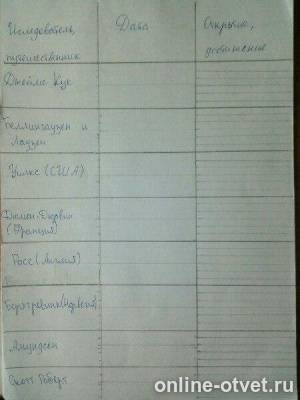 Исследователь, Дата Открытие,
путешественник достижение
Джеймс Кук
Беллинсгаузен и
Лазарев
Уилкс (США)
Дюмон-Дюрвиль
(Франция)
Росс (Англия)
Борхгревинк (Норвегия)
Амундсен
Скотт Роберт
online-otvet.ru